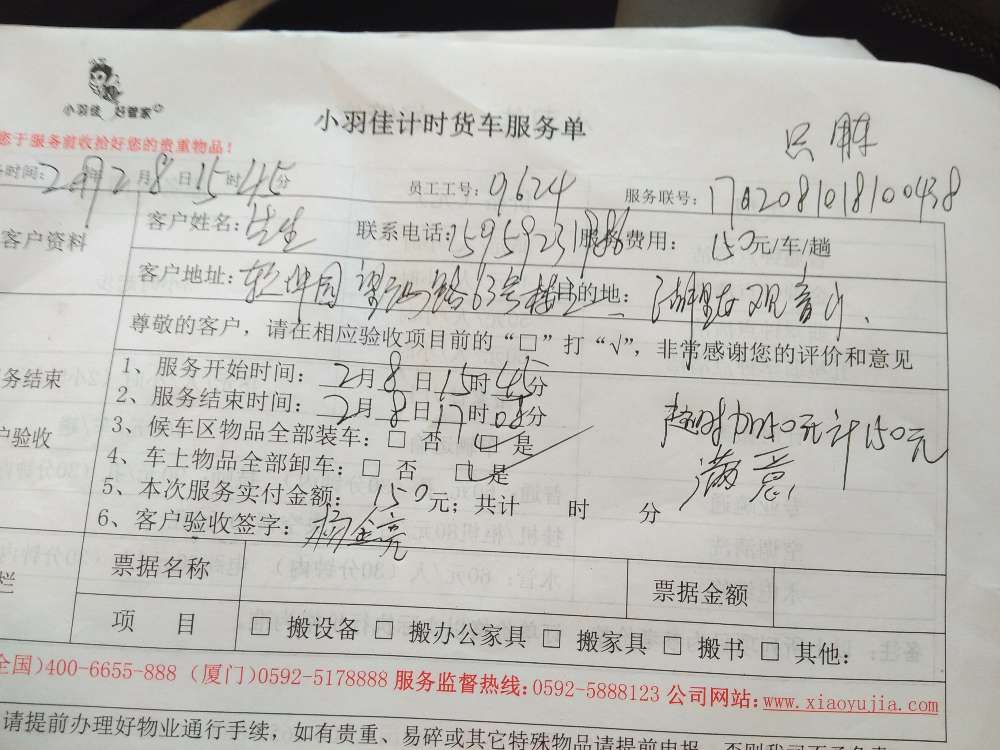 小羽佳 好管家
小羽佳计时货车服务单
您于服务前收拾好您的贵重物品！
务时间: 年2月8日15时45分
员工工号: 9624
服务联号: 1702081018100438
客户资料
客户姓名: 先生
联系电话: 15959231986
服务费用: 150元/车/趟
客户地址: 软件园望海路63号楼
目的地: 湖里区观音山、
尊敬的客户，请在相应验收项目前的“□”打“√”，非常感谢您的评价和意见
务结束
户验收
1、服务开始时间: 2月8日15时45分
2、服务结束时间: 2月8日17时08分
3、候车区物品全部装车: □ 否 □ 是
4、车上物品全部卸车: □ 否 □ 是
5、本次服务实付金额: 150元；共计 时 分
6、客户验收签字:
超时加50元计150元
满意
栏
票据名称
票据金额
项 目
□ 搬设备 □ 搬办公家具 □ 搬家具 □ 搬书 □ 其他:
全国)400-6655-888 (厦门)0592-5178888 服务监督热线:0592-5888123 公司网站:www.xiaoyujia.com
请提前办理好物业通行手续，如有贵重、易碎或其它特殊物品请提前申报，否则我司不予负责